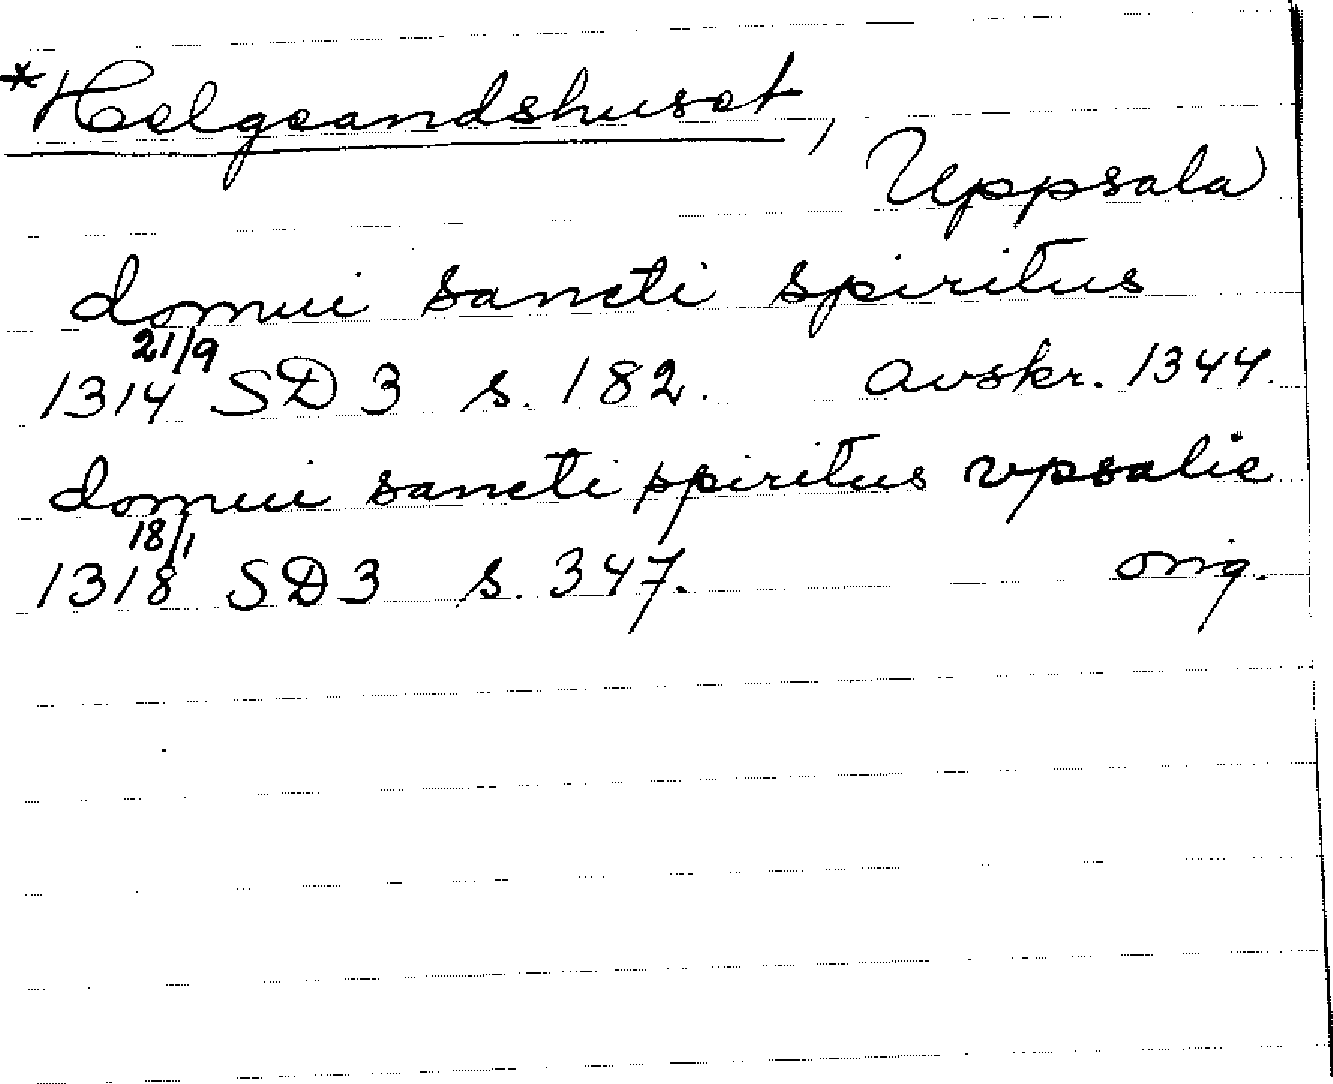 *Helgeandshuset,
Uppsala
domui sancti spiritus
1314 21/9 SD 3 s. 182. avskr. 1344.
domui sancti spiritus vpsalie
1318 18/1 SD 3 s. 347. orig.